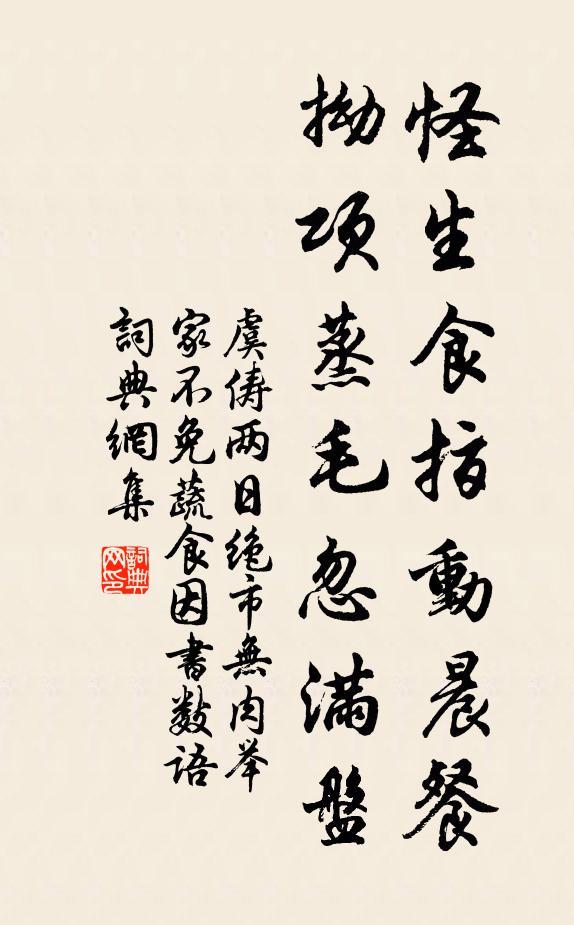 怪生食指動晨餐
拗項蒸毛忽滿盤
虞俦两日绝市無肉举
家不免蔬食因書数语
詞典網集
詞典网印